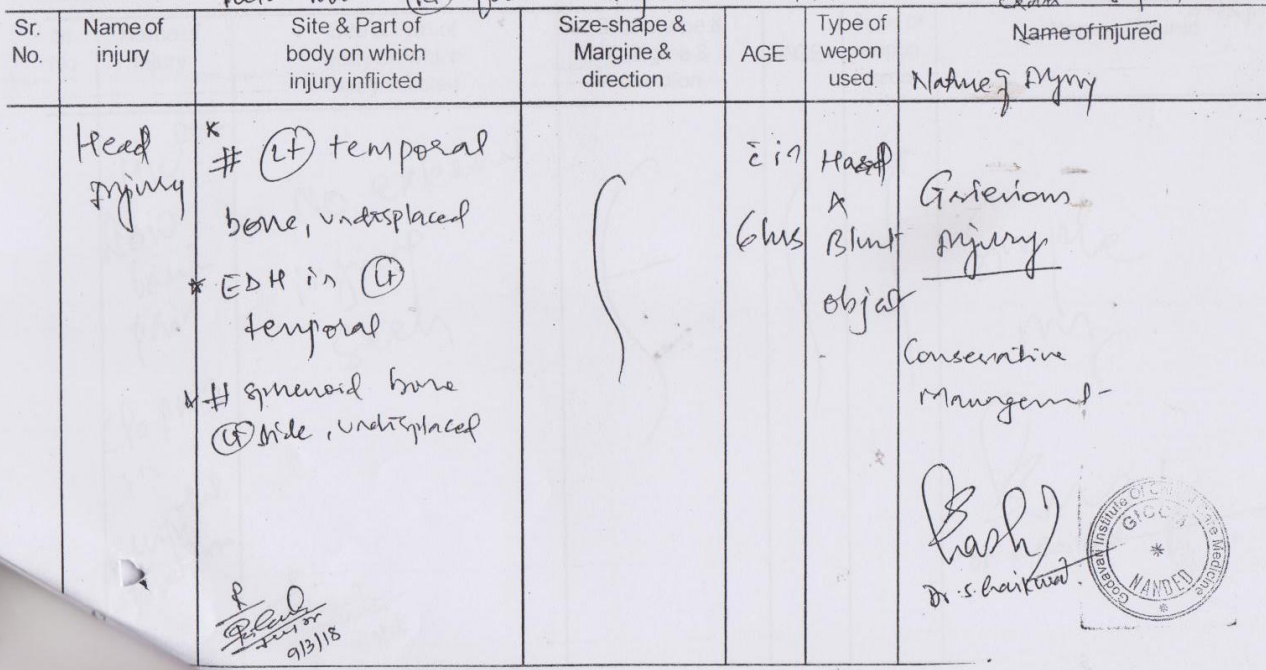 Sr. No.
Name of injury
Site & Part of body on which injury inflicted
Size-shape & Margine & direction
AGE
Type of wepon used
Name of injured
Nature of Injury
Head
Injury
* # (Lt) temporal
bone, undisplaced
* EDH in (Lt)
temporal
* # sphenoid bone
(Lt) side, undisplaced
c̄ in
6 hrs
Hard
&
Blunt
object
Grievious
Injury
Conservative
Management
Dr. S.
Godavari Institute Of Critical Care Medicine
GICCM
NANDED
9/3/18